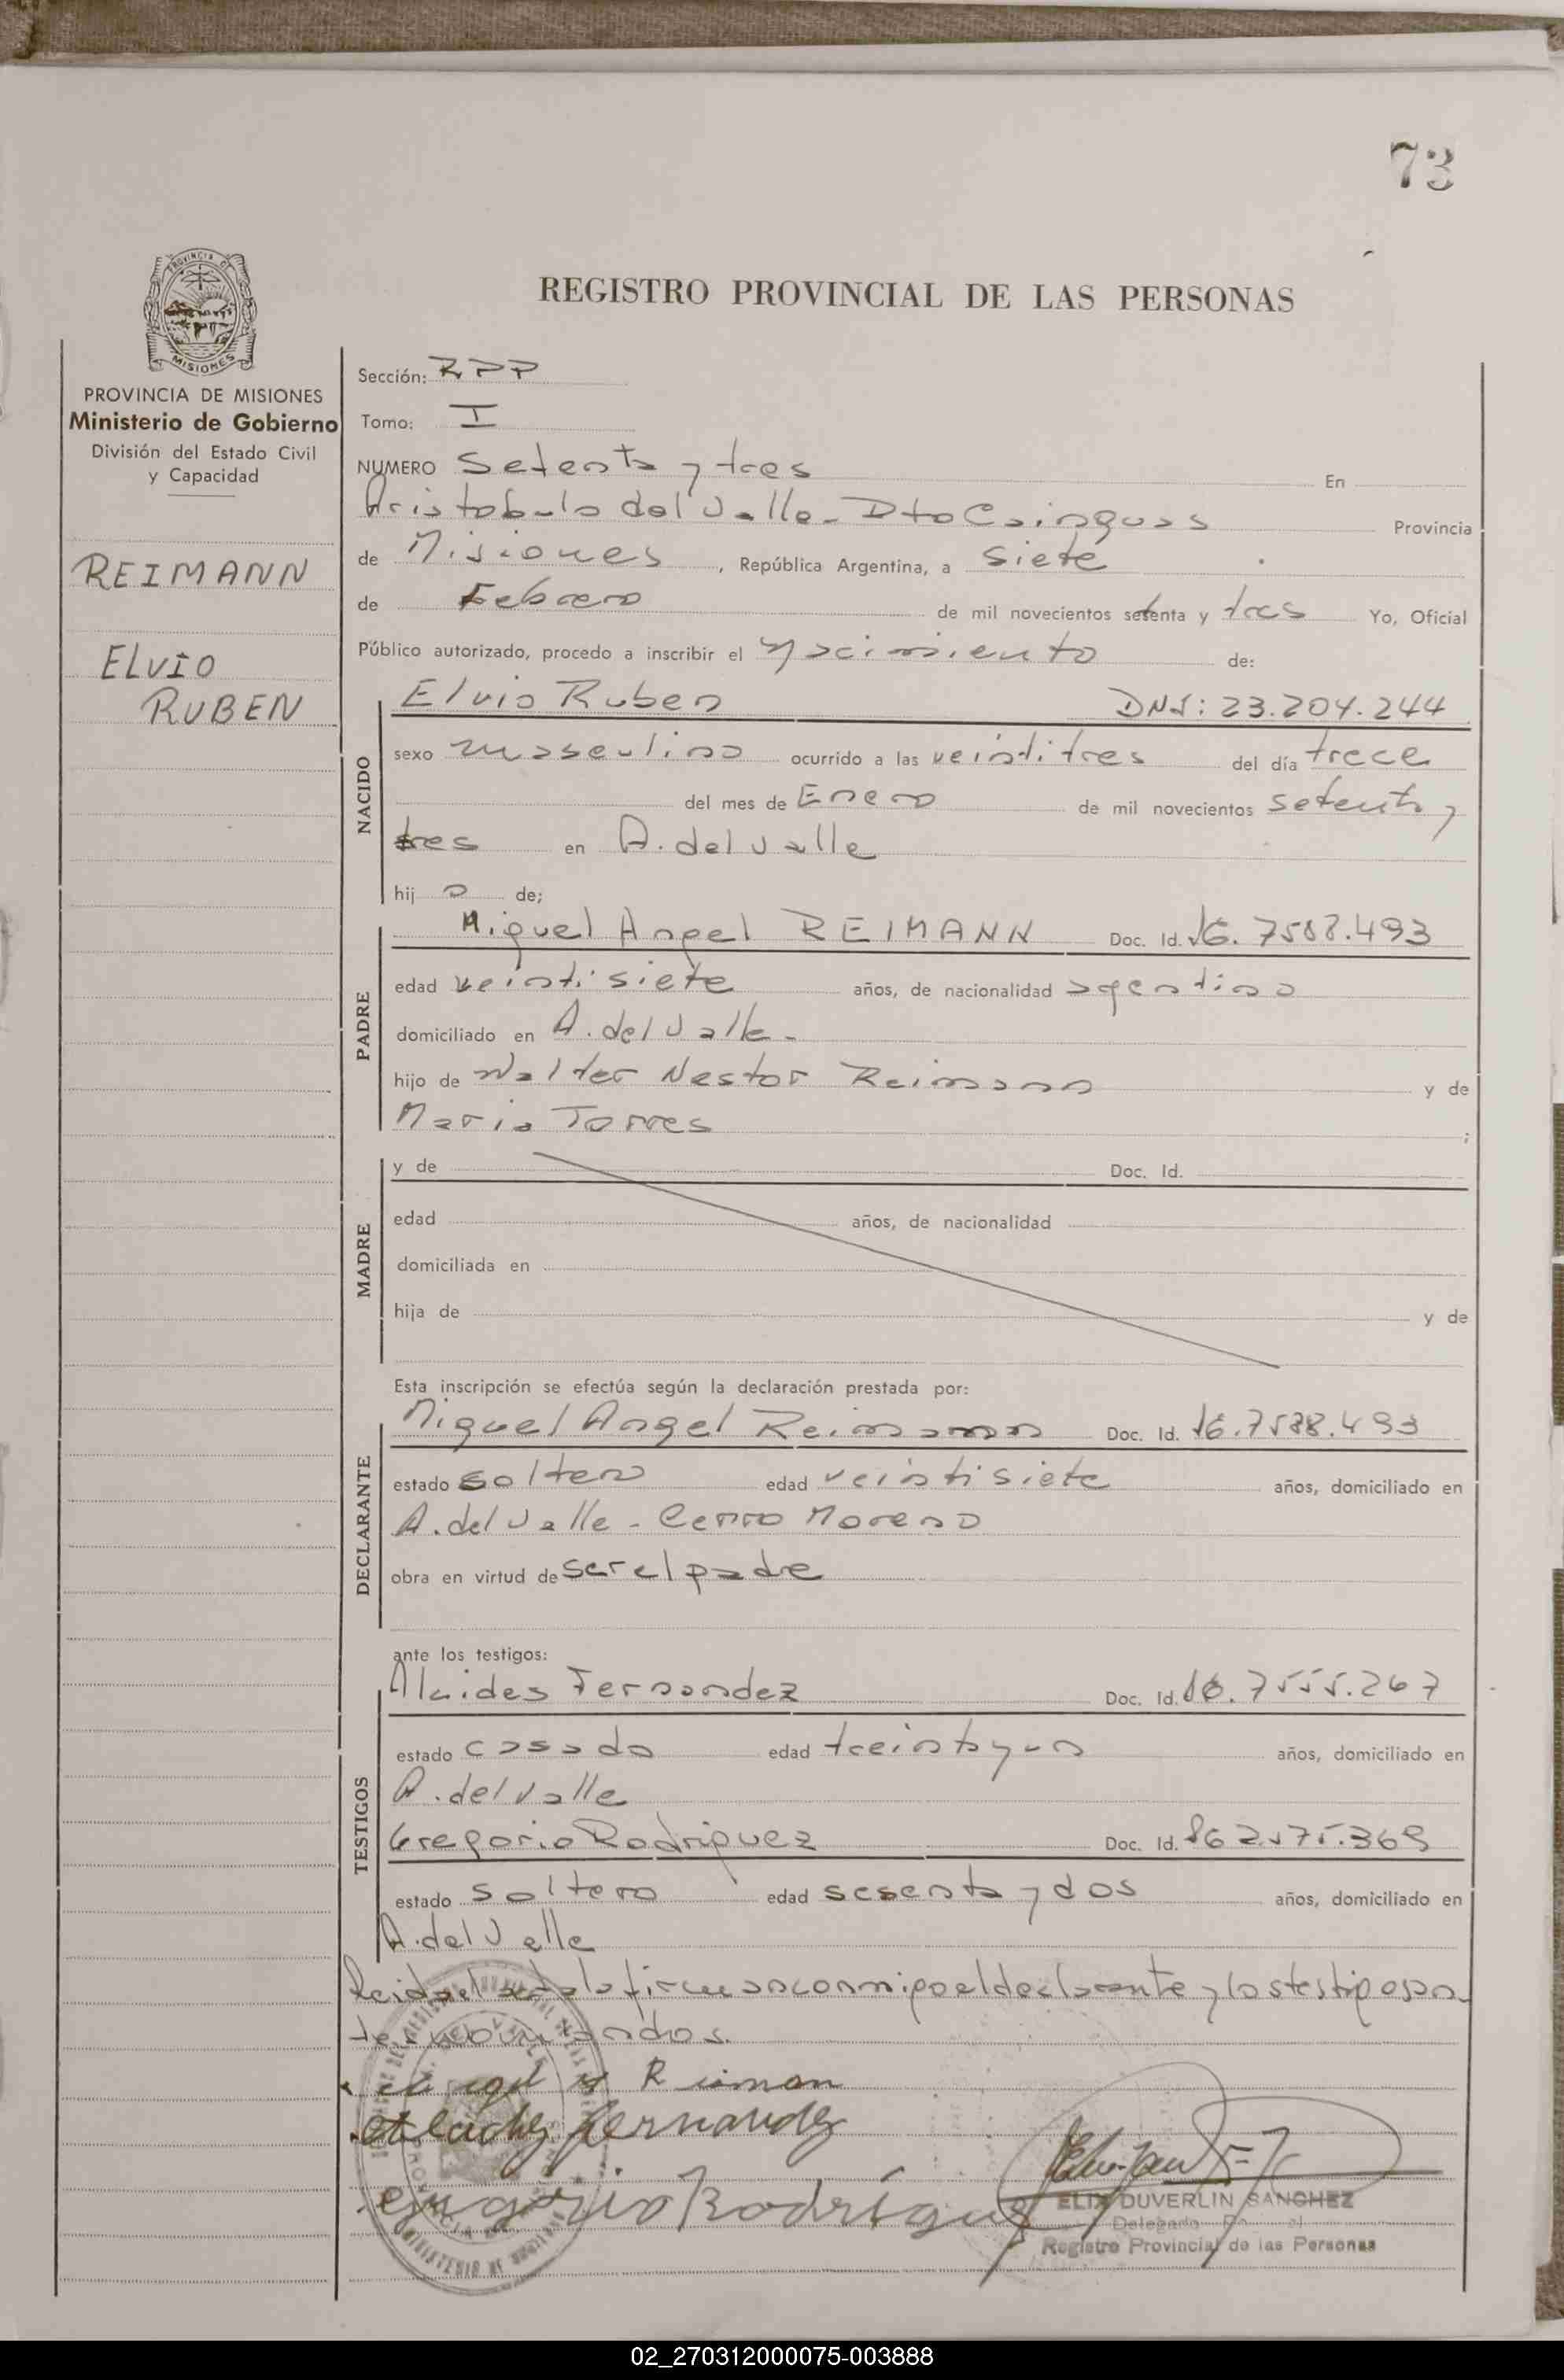 73
REGISTRO PROVINCIAL DE LAS PERSONAS
MISIONES
PROVINCIA DE MISIONES
Ministerio de Gobierno
División del Estado Civil
y Capacidad
REIMANN
ELVIO
RUBEN
Sección: RPP
Tomo: I
NUMERO Setenta y tres En
Aristobulo del Valle - Dto Cainguas Provincia
de Misiones, República Argentina, a siete
de Febrero de mil novecientos setenta y tres Yo, Oficial
Público autorizado, procedo a inscribir el Nacimiento de:
NACIDO
Elvio Ruben DNI: 23.204.244
sexo masculino ocurrido a las veintitres del día trece
del mes de Enero de mil novecientos setenta y
tres en A. del Valle
hijo de;
PADRE
Miguel Angel REIMANN Doc. Id.
edad veintisiete años, de nacionalidad agentino
domiciliado en A. del Valle -
hijo de Walter Nestor Reimann y de
Maria Torres ;
MADRE
y de Doc. Id.
edad años, de nacionalidad
domiciliada en
hija de y de
Esta inscripción se efectúa según la declaración prestada por:
DECLARANTE
Miguel Angel Reimann Doc. Id.
estado soltero edad veintisiete años, domiciliado en
A. del Valle - Cerro Moreno
obra en virtud de ser el padre
ante los testigos:
TESTIGOS
Alcides Fernandez Doc. Id.
estado casado edad treinta y un años, domiciliado en
A. del Valle
Gregorio Rodriguez Doc. Id.
estado soltero edad sesenta y dos años, domiciliado en
A. del Valle
Leida el acta la firman conmigo el declarante y los testigos
Fernandez
Gregorio Rodrigue
ELIX DUVERLIN SANCHEZ
Delegado
Registro Provincial de las Personas
02_270312000075-003888